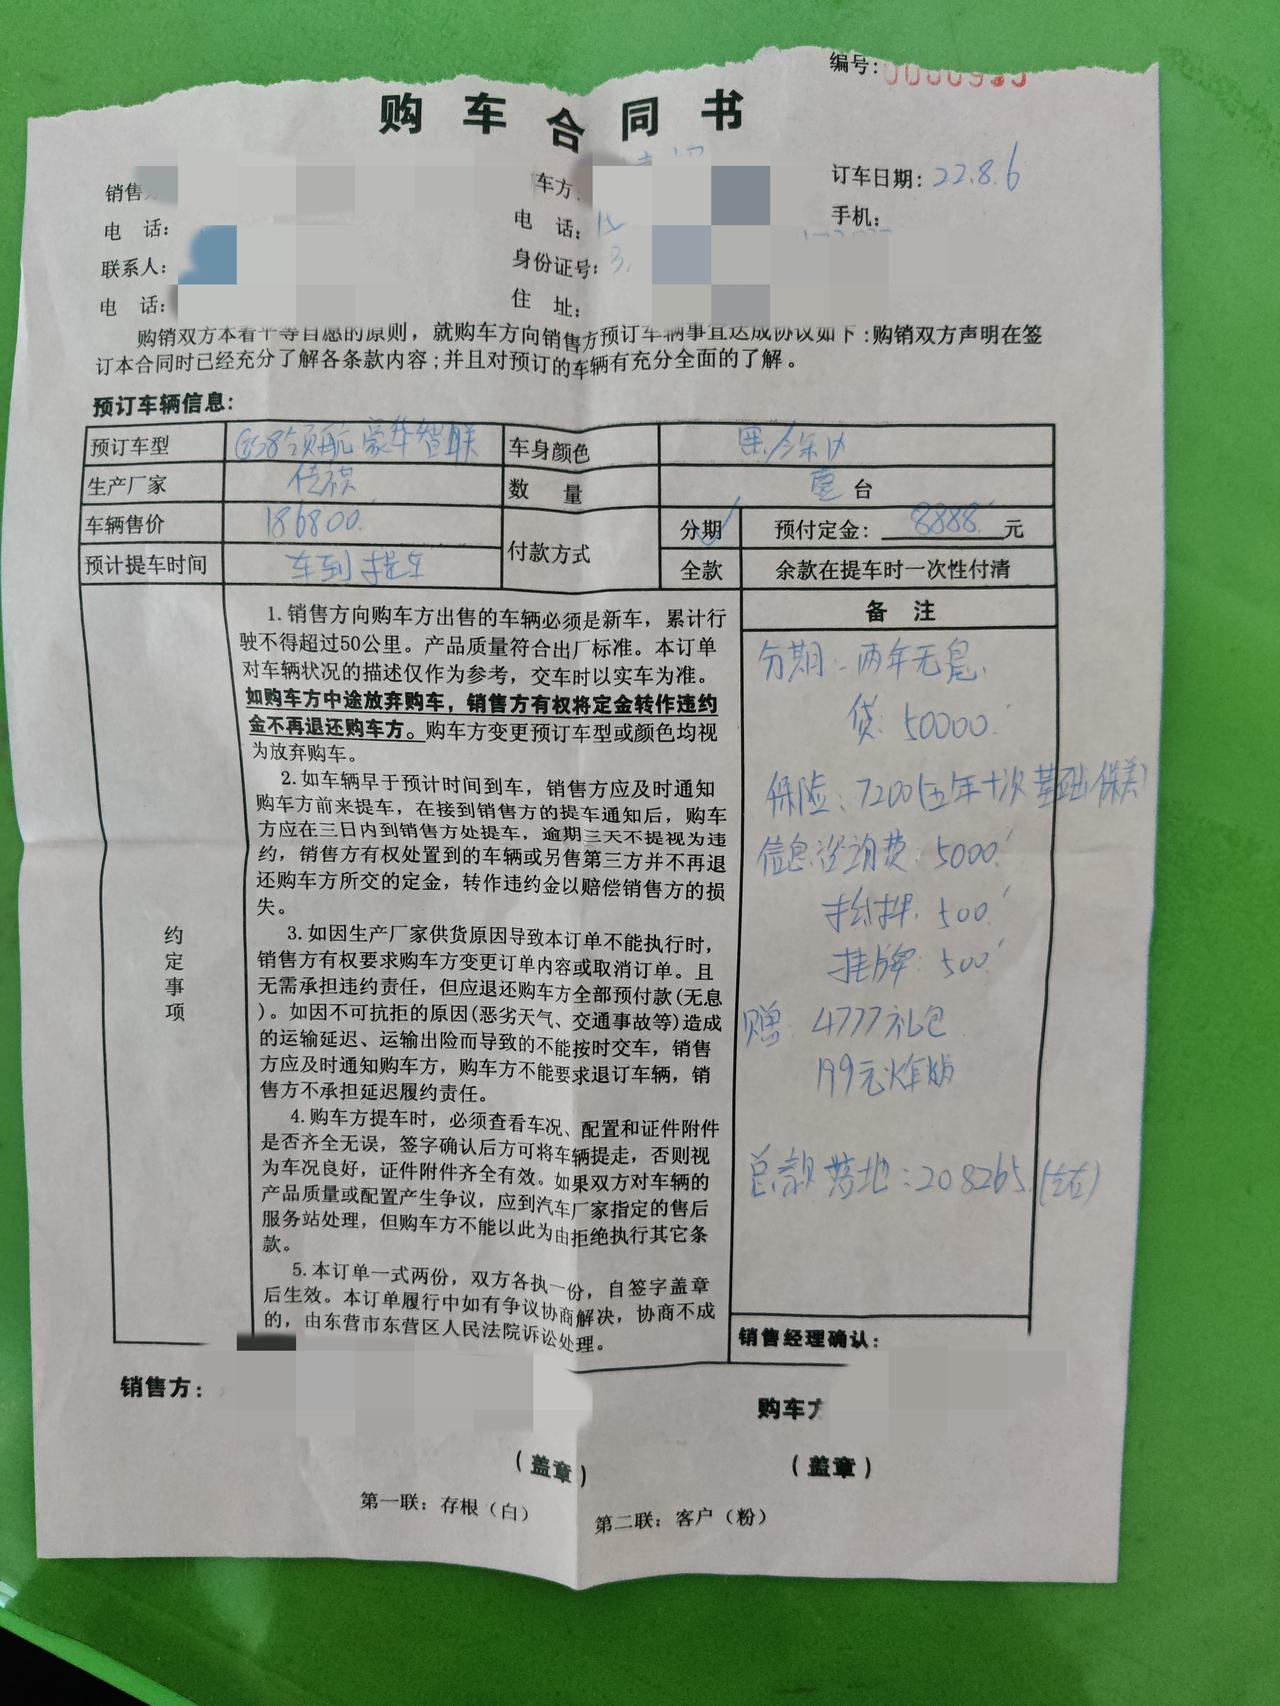 编号:
购车合同书
销售
车方:
订车日期: 22.8.6
电 话:
电 话:
手机:
联系人:
身份证号: 3
电 话:
住 址:
购销双方本着平等自愿的原则，就购车方向销售方预订车辆事宜达成协议如下:购销双方声明在签
订本合同时已经充分了解各条款内容;并且对预订的车辆有充分全面的了解。
预订车辆信息:
预订车型 GS8领航 豪华智联 车身颜色 黑/余力
生产厂家 传祺 数 量 壹 台
车辆售价 186800. 付款方式 分期 ✓ 预付定金: 8888 元
预计提车时间 车到提车 全款 余款在提车时一次性付清
约定事项
1.销售方向购车方出售的车辆必须是新车，累计行
驶不得超过50公里。产品质量符合出厂标准。本订单
对车辆状况的描述仅作为参考，交车时以实车为准。
如购车方中途放弃购车，销售方有权将定金转作违约
金不再退还购车方。购车方变更预订车型或颜色均视
为放弃购车。
2.如车辆早于预计时间到车，销售方应及时通知
购车方前来提车，在接到销售方的提车通知后，购车
方应在三日内到销售方处提车，逾期三天不提视为违
约，销售方有权处置到的车辆或另售第三方并不再退
还购车方所交的定金，转作违约金以赔偿销售方的损
失。
3.如因生产厂家供货原因导致本订单不能执行时，
销售方有权要求购车方变更订单内容或取消订单。且
无需承担违约责任，但应退还购车方全部预付款(无息
)。如因不可抗拒的原因(恶劣天气、交通事故等)造成
的运输延迟、运输出险而导致的不能按时交车，销售
方应及时通知购车方，购车方不能要求退订车辆，销
售方不承担延迟履约责任。
4.购车方提车时，必须查看车况、配置和证件附件
是否齐全无误，签字确认后方可将车辆提走，否则视
为车况良好，证件附件齐全有效。如果双方对车辆的
产品质量或配置产生争议，应到汽车厂家指定的售后
服务站处理，但购车方不能以此为由拒绝执行其它条
款。
5.本订单一式两份，双方各执一份，自签字盖章
后生效。本订单履行中如有争议协商解决，协商不成
的，由东营市东营区人民法院诉讼处理。
备 注
分期: 两年无息
贷: 50000
保险: 7200(五年十次基础保养)
信息咨询费: 5000
抵押: 500
挂牌: 500
赠: 4777礼包
199元
总款落地: 208265.(左右)
销售经理确认:
销售方:
购车方
(盖章)
(盖章)
第一联: 存根(白)
第二联: 客户(粉)